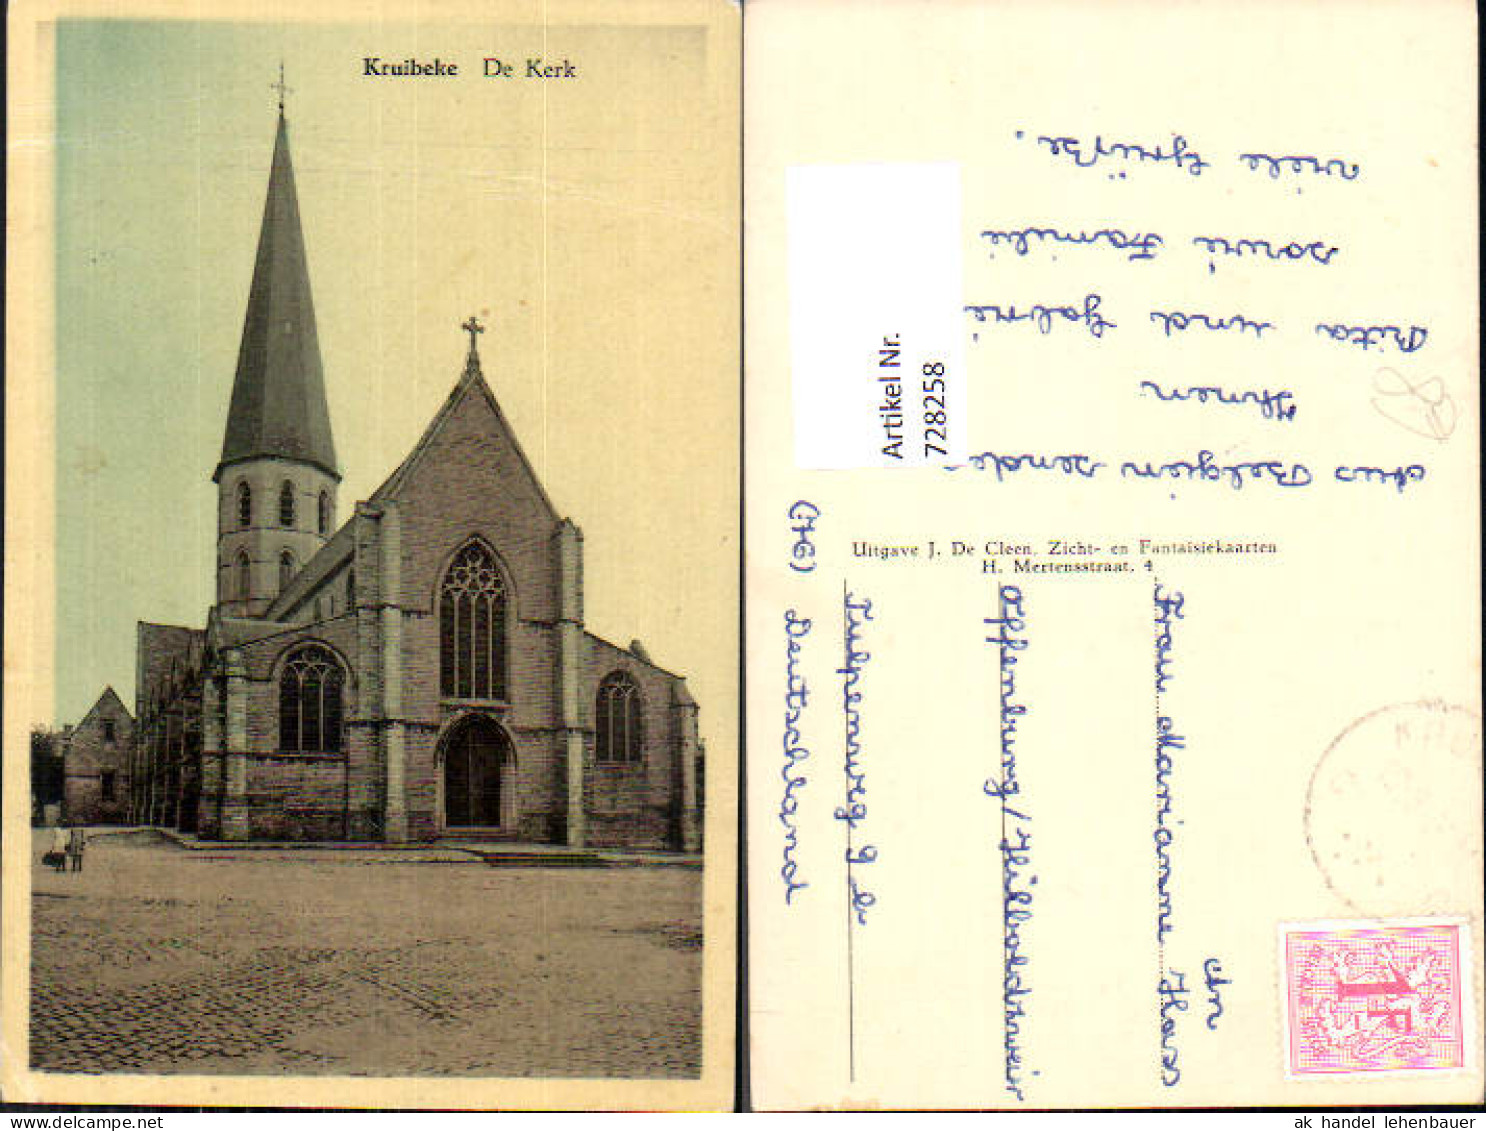 Kruibeke De Kerk
Artikel Nr.
728258
Aus Belgien senden
Ihnen
Rita und Gabri
sowie Familie
viele Grüße.
Uitgave J. De Cleen, Zicht- en Fantaisiekaarten
H. Mertensstraat, 4
An
Frau Marianne Hass
Offenburg/Hildboldsweier
Tulpenweg 9 b
(76) Deutschland
1F
ak handel lehenbauer